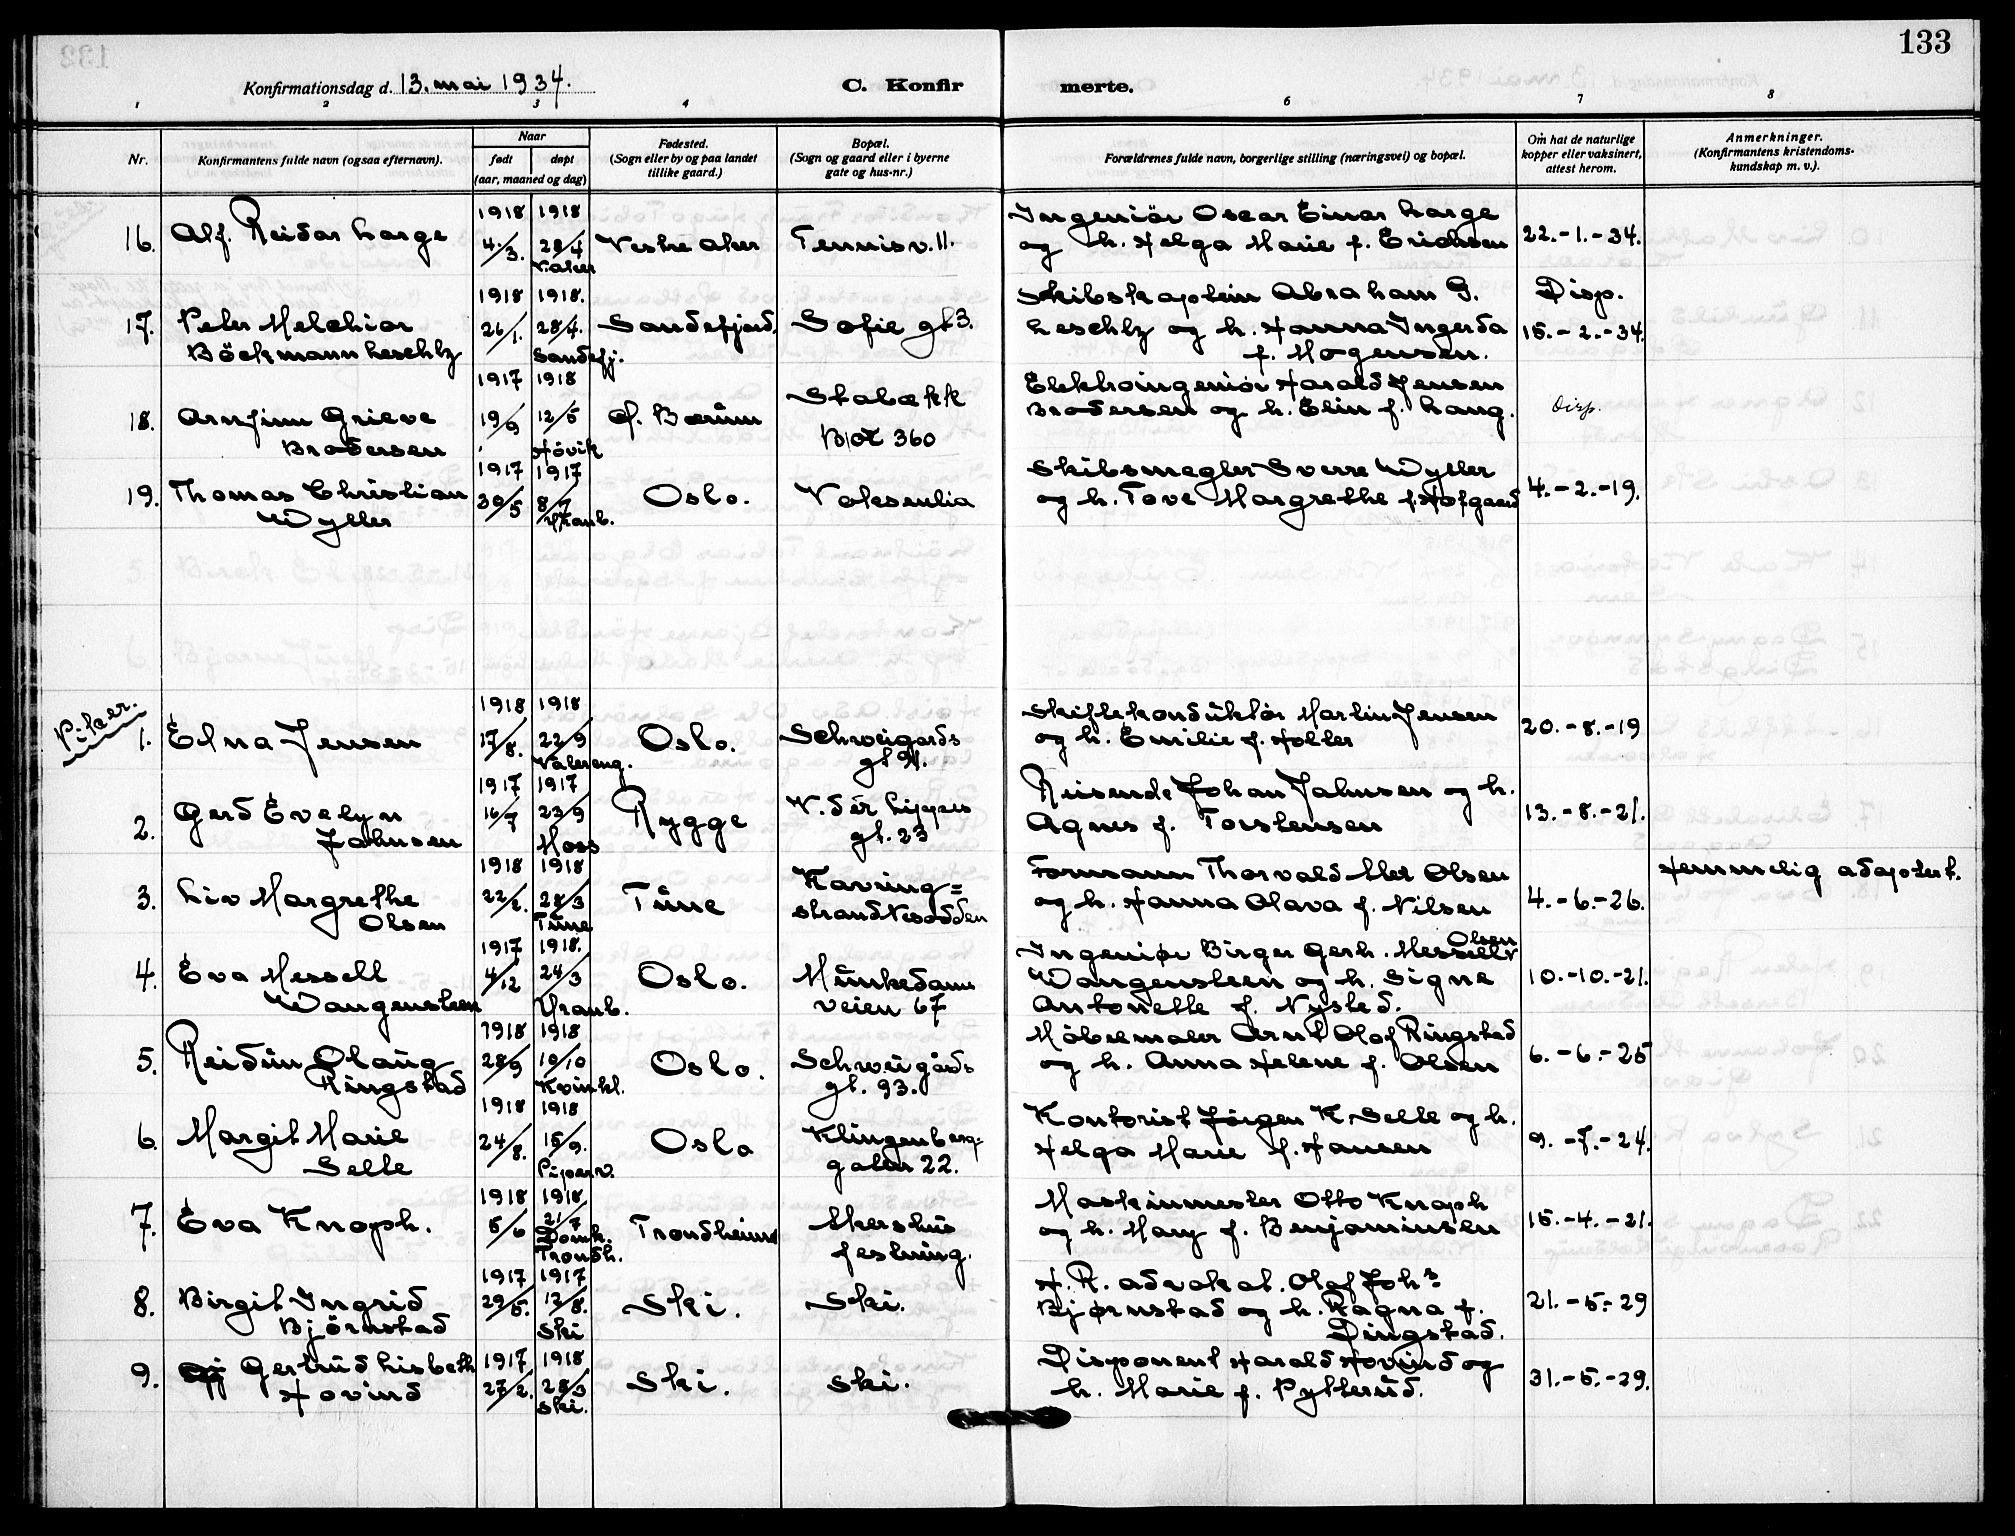 133
Konfirmationsdag d. 13. mai 1934. C. Konfirmerte.
1 2 3 4 5 6 7 8
Nr. Konfirmantens fulde navn (ogsaa efternavn). Naar født døpt (aar, maaned og dag) Fødested. (Sogn eller by og paa landet tillike gaard.) Bopæl. (Sogn og gaard eller i byerne gate og hus-nr.) Forældrenes fulde navn, borgerlige stilling (næringsvei) og bopæl. Om hat de naturlige kopper eller vaksinert, attest herom. Anmerkninger. (Konfirmantens kristendomskundskap m. v.).
1918 1918 Ingeniør Oscar Einar Large
16. Alf. Reidar Large 4/3. 28/4 Vestre Aker Tennisv. 11. og h. Helga Marie f. Erichsen 22.-1.-34.
V. Aker
1918 1918. Skibskaptein Abraham G. Disp.
17. Peter Melchior 26/1. 28/4. Sandefjord. Sofie gt 3. Leschly og h. Hanna Ingerda 15.-2.-34.
Böckmann Leschly Sandefj. f. Mogensen.
1917 1918 Elektroingeniør Harald Jensen
18. Arnfinn Grieve 19/9 12/5 Ø. Bærum Stabækk Brodersen og h. Elin f. Lang. Disp.
Brodersen Høvik Box 360
1917 1917 Skibsmegler Sverre Wyller
19. Thomas Christian 30/5 8/7 Oslo. Voksenlia og h. Tove Margrethe f. Hofgaard 4.-2.-19.
Wyller Uranb.
Piker.
1918 1918 Skiftekonduktør Martin Jensen
1. Elna Jensen 17/8. 22/9 Oslo. Schweigårds og h. Emilie f. Holter 20.-8.-19
Vålereng. gt 91.
1917 1917 Reisende Johan Jahnsen og h.
2. Gerd Evelyn 16/7 23/9 Rygge N. dér Lippes Agnes f. Torstensen 13.-8.-21.
Jahnsen Moss gt. 23
1918 1918 Formann Thorvald Olsen Hemmelig adoptert.
3. Liv Margrethe 22/2. 28/3 Tune Kavring= og h. Hanna Olava f. Nilsen 4.-6.-26.
Olsen Tune strand Nesodden
1917 1918. Ingeniør Birger Gerh. Messelt Olsen
4. Eva Messell 4/12 24/3 Oslo. Munkedams Wangensteen og h. Signe 10.-10.-21.
Wangensteen Uranb. veien 67 Antonette f. Nysted.
1918 1918 Møbelmaler Arnt Olaf Ringstad
5. Reidun Olaug 28/9 10/10 Oslo. Schweigårds og h. Anna Helene f. Olsen 6.-6.-25
Ringstad Kvinkl. gt. 93.
1918 1918 Kontorist Jørgen K. Selle og h.
6. Margit Marie 24/8. 15/9. Oslo Klingenberg= Helga Marie f. Hansen 9.-7.-24.
Selle Piperv. gaten 22.
1918 1918 Maskinmester Otto Knoph
7. Eva Knoph. 5/6 21/7 Trondheim Akershus og h. Mary f. Benjaminsen 15.-4.-21.
Domk. Trondh. festning.
1917 1917 H. R. advokat. Olaf Johs
8. Birgit Ingrid 29/5. 12/8. Ski. Ski. Bjørnstad og h. Ragna f. 21.-5.-29
Björnstad Ski Dingstad.
1917 1918 Disponent Harald Hovind og
9. Gertrud Lisbeth 27/2. 28/3 Ski. Ski. h. Marie f. Pytterud. 31.-5.-29.
Hovind Ski.